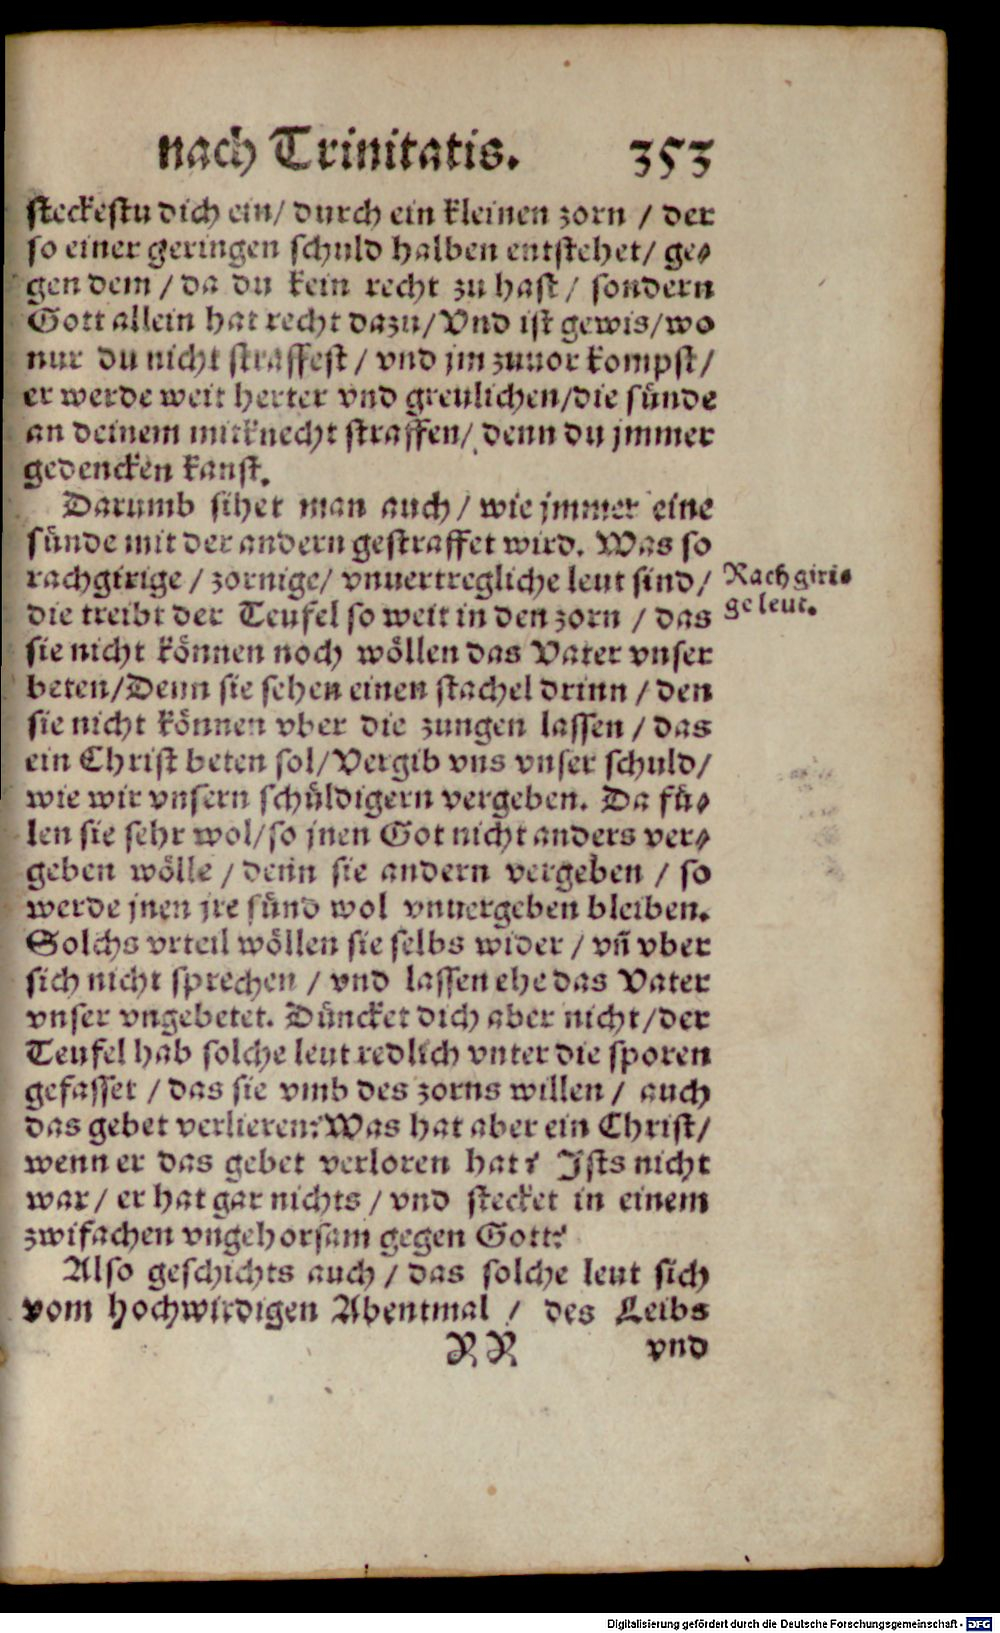 nach Trinitatis. 353
steckestu dich ein/ durch ein kleinen zorn / der
so einer geringen schuld halben entstehet/ ge⸗
gen dem / da du kein recht zu hast / sondern
Gott allein hat recht dazu/ Vnd ist gewis/ wo
nur du nicht straffest / vnd jm zuuor kompst /
er werde weit herter vnd greulichen/ die sünde
an deinem mitknecht straffen/ denn du jmmer
gedencken kanst.
Darumb sihet man auch / wie jmmer eine
sünde mit der andern gestraffet wird. Was so
rachgirige / zornige/ vnuertregliche leut sind/
Rachgiri⸗
ge leut.
die treibt der Teufel so weit in den zorn / das
sie nicht können noch wöllen das Vater vnser
beten/ Denn sie sehen einen stachel drinn / den
sie nicht können vber die zungen lassen / das
ein Christ beten sol/ Vergib vns vnser schuld/
wie wir vnsern schüldigern vergeben. Da fü⸗
len sie sehr wol/ so jnen Got nicht anders ver⸗
geben wölle / denn sie andern vergeben / so
werde jnen jre sünd wol vnuergeben bleiben.
Solchs vrteil wöllen sie selbs wider / vñ vber
sich nicht sprechen / vnd lassen ehe das Vater
vnser vngebetet. Düncket dich aber nicht/ der
Teufel hab solche leut redlich vnter die sporen
gefasset / das sie vmb des zorns willen / auch
das gebet verlieren? Was hat aber ein Christ/
wenn er das gebet verloren hat? Ists nicht
war / er hat gar nichts / vnd stecket in einem
zwifachen vngehorsam gegen Gott?
Also geschichts auch / das solche leut sich
vom hochwirdigen Abentmal / des Leibs
RR vnd
Digitalisierung gefördert durch die Deutsche Forschungsgemeinschaft - DFG